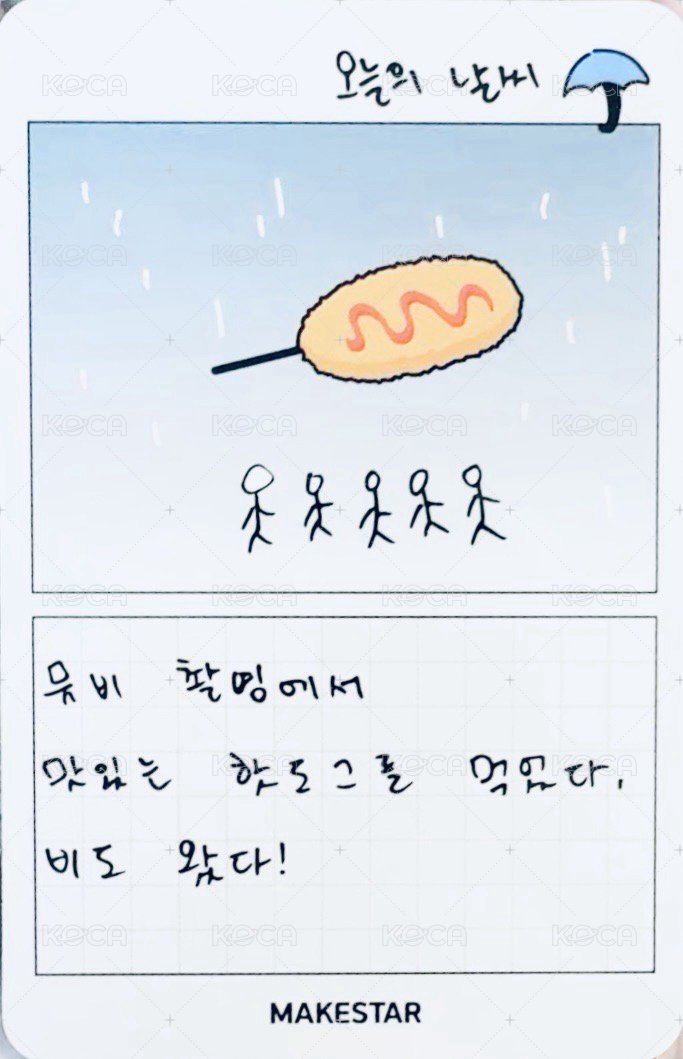 오늘의 날씨
뮤비 촬영에서
맛있는 핫도그를 먹었다.
비도 왔다!
MAKESTAR
KOCA